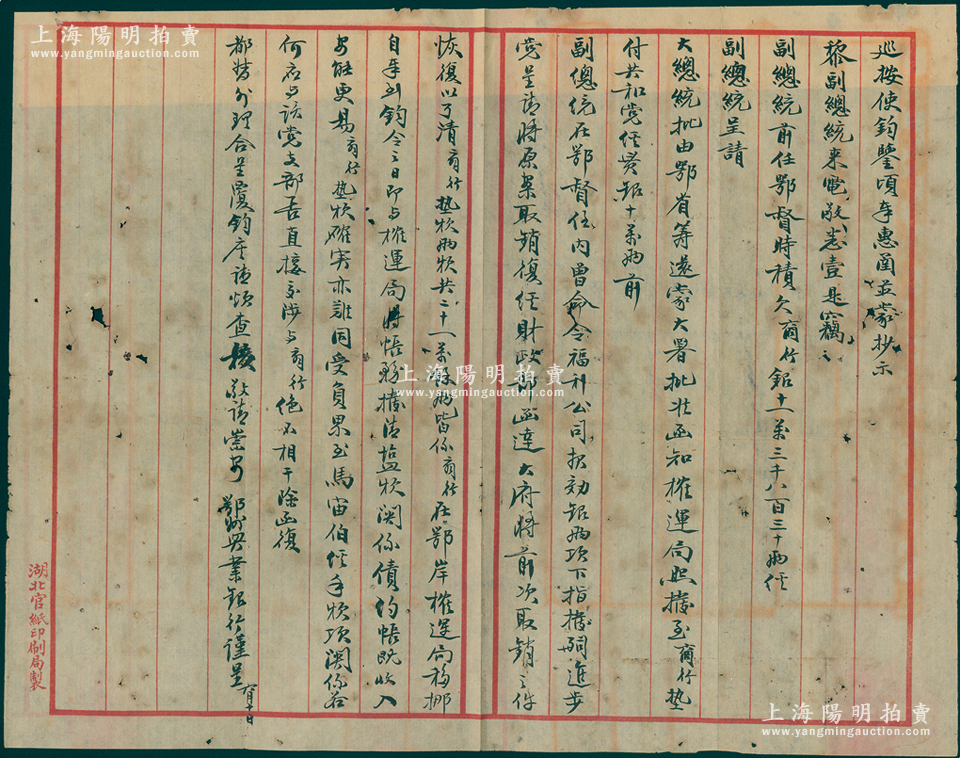 巡按使鈞鑒頃奉惠函並蒙抄示
黎副總統來電敬悉壹是竊之
副總統前任鄂督時積欠商行銀十一萬三千八百三十兩經
副總統呈請
大總統批由鄂省籌還蒙大署批准函知榷運局照撥至商行墊
付共和黨經費銀十萬兩前
副總統在鄂督任內曾命令福利公司報効銀兩項下指撥嗣進步
黨呈請將原案取銷復經財政部函達大府將前次取銷之件
恢復以了清商行墊欵兩欵共二十一萬餘兩皆係商行在鄂岸榷運局移挪
自奉到鈞令之日即与榷運局將帳務撥清鹽欵関係債約帳既收入
能更易商行墊欵確実亦誰同受負累至馬宙伯經手欵項関係若
何應与該黨支部直接交涉与商行絕不相干除函復
都督外理合呈覆鈞座請煩查核敬請崇安 鄂州興業銀行謹呈
湖北官紙印刷局製
上海陽明拍賣
www.yangmingauction.com
上海陽明拍賣
www.yangmingauction.com
上海陽明拍賣
www.yangmingauction.com